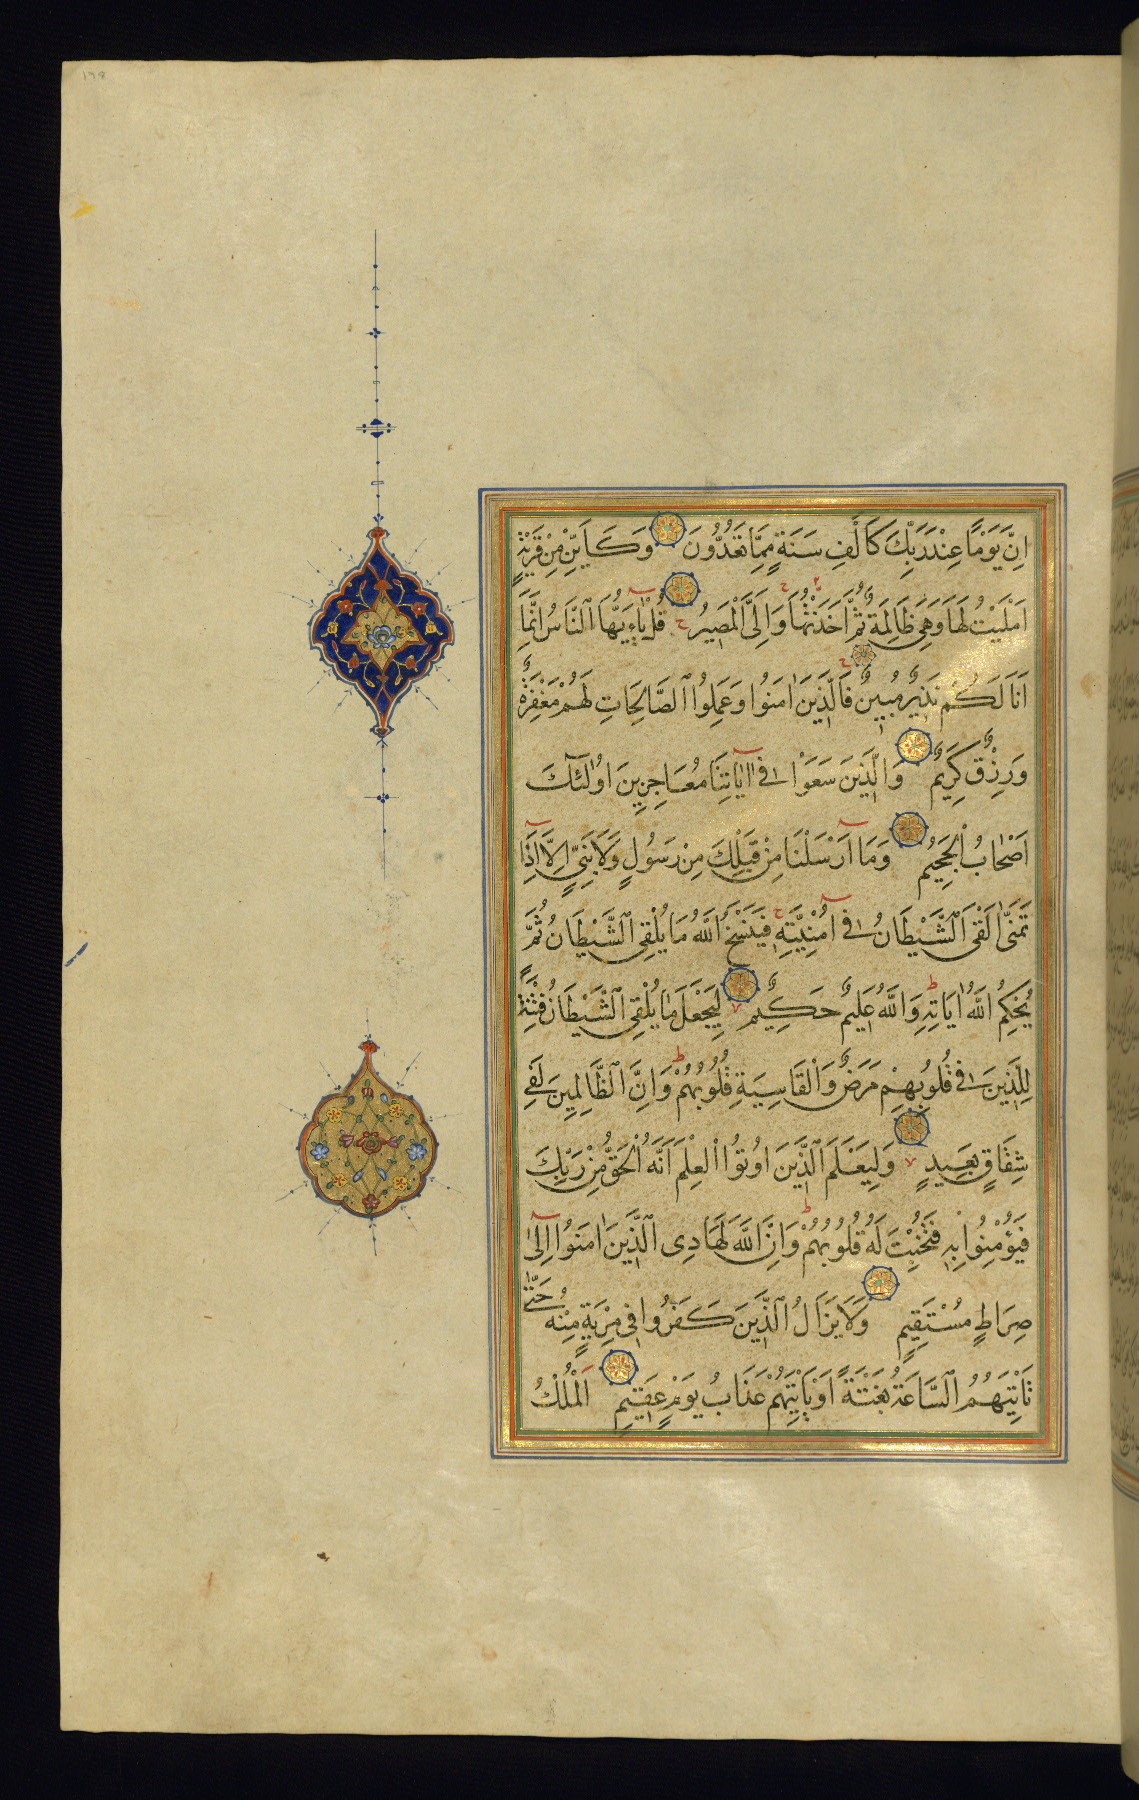 ۱۹۵
اِنَّ يَوْمًا عِنْدَ رَبِّكَ كَاَلْفِ سَنَةٍ مِمَّا تَعُدُّونَ وَكَاَيِّنْ مِنْ قَرْيَةٍ
اَمْلَيْتُ لَهَا وَهِيَ ظَالِمَةٌ ثُمَّ اَخَذْتُهَا وَاِلَيَّ الْمَصِيرُ قُلْ يَاءَيُّهَا النَّاسُ اِنَّمَا
اَنَا لَكُمْ نَذِيرٌ مُبِينٌ فَالَّذِينَ اٰمَنُوا وَعَمِلُوا الصَّالِحَاتِ لَهُمْ مَغْفِرَةٌ
وَرِزْقٌ كَرِيمٌ وَالَّذِينَ سَعَوْا فِى اٰيَاتِنَا مُعَاجِزِينَ اُولٰئِكَ
اَصْحَابُ الْجَحِيمِ وَمَا اَرْسَلْنَا مِنْ قَبْلِكَ مِنْ رَسُولٍ وَلَا نَبِيٍّ اِلَّا اِذَا
تَمَنّٰى اَلْقَى الشَّيْطَانُ فِى اُمْنِيَّتِهِ فَيَنْسَخُ اللّٰهُ مَا يُلْقِى الشَّيْطَانُ ثُمَّ
يُحْكِمُ اللّٰهُ اٰيَاتِهِ وَاللّٰهُ عَلِيمٌ حَكِيمٌ لِيَجْعَلَ مَا يُلْقِى الشَّيْطَانُ فِتْنَةً
لِلَّذِينَ فِى قُلُوبِهِمْ مَرَضٌ وَالْقَاسِيَةِ قُلُوبُهُمْ وَاِنَّ الظَّالِمِينَ لَفِى
شِقَاقٍ بَعِيدٍ وَلِيَعْلَمَ الَّذِينَ اُوتُوا الْعِلْمَ اَنَّهُ الْحَقُّ مِنْ رَبِّكَ
فَيُؤْمِنُوا بِهِ فَتُخْبِتَ لَهُ قُلُوبُهُمْ وَاِنَّ اللّٰهَ لَهَادِى الَّذِينَ اٰمَنُوا اِلٰى
صِرَاطٍ مُسْتَقِيمٍ وَلَا يَزَالُ الَّذِينَ كَفَرُوا فِى مِرْيَةٍ مِنْهُ حَتّٰى
تَاْتِيَهُمُ السَّاعَةُ بَغْتَةً اَوْ يَاْتِيَهُمْ عَذَابُ يَوْمٍ عَقِيمٍ اَلْمُلْكُ